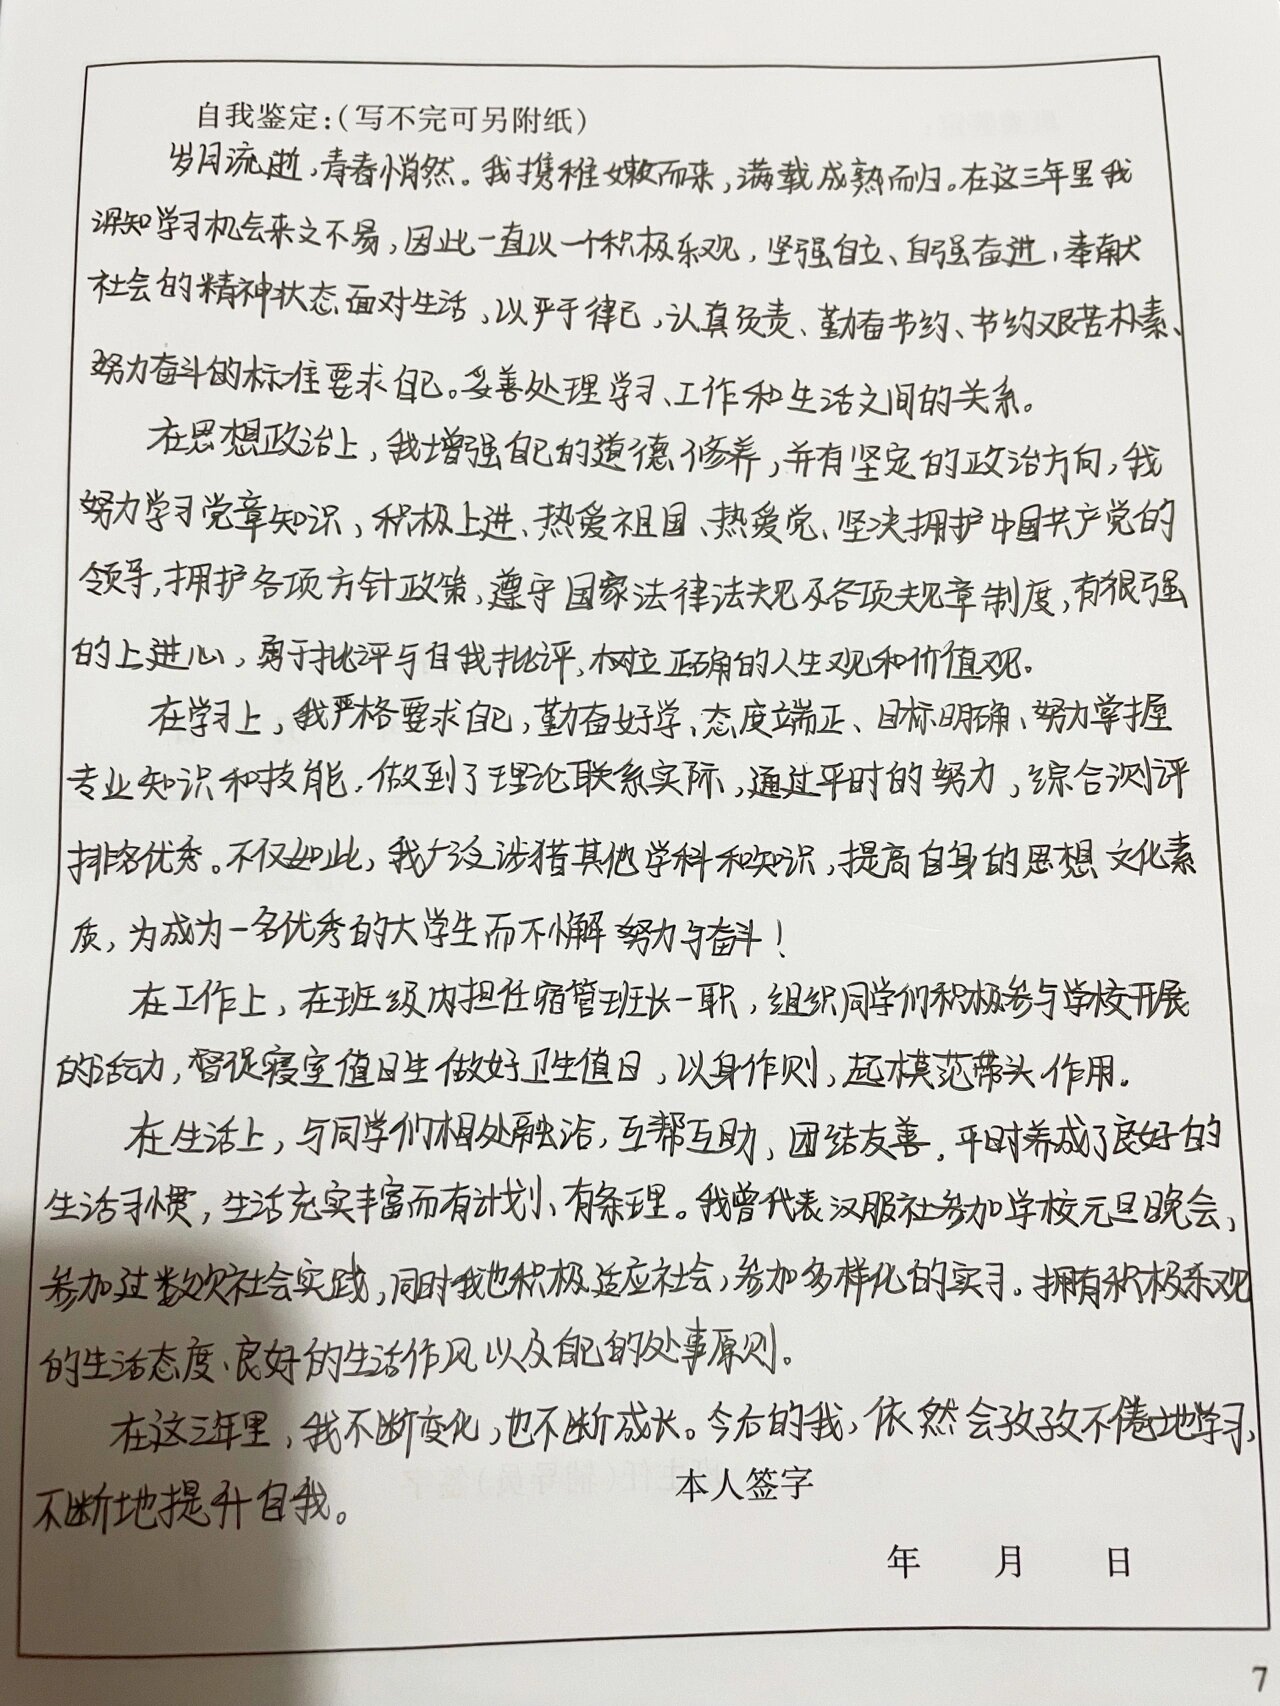 自我鉴定:(写不完可另附纸)
岁月流逝,青春悄然。我携稚嫩而来,满载成熟而归。在这三年里我
深知学习机会来之不易,因此一直以一个积极乐观,坚强自立、自强奋进,奉献
社会的精神状态面对生活,以严于律己,认真负责、勤奋节约、节约艰苦朴素、
努力奋斗的标准要求自己。妥善处理学习、工作和生活之间的关系。
在思想政治上,我增强自己的道德修养,并有坚定的政治方向,我
努力学习党章知识,积极上进、热爱祖国、热爱党、坚决拥护中国共产党的
领导,拥护各项方针政策,遵守国家法律法规及各项规章制度,有很强
的上进心,勇于批评与自我批评,树立正确的人生观和价值观。
在学习上,我严格要求自己,勤奋好学、态度端正、目标明确、努力掌握
专业知识和技能,做到了理论联系实际,通过平时的努力,综合测评
排名优秀。不仅如此,我广泛涉猎其他学科和知识,提高自身的思想文化素
质,为成为一名优秀的大学生而不懈努力与奋斗!
在工作上,在班级内担任宿管班长一职,组织同学们积极参与学校开展
的活动,督促寝室值日生做好卫生值日,以身作则,起模范带头作用。
在生活上,与同学们相处融洽,互帮互助,团结友善,平时养成了良好的
生活习惯,生活充实丰富而有计划、有条理。我曾代表汉服社参加学校元旦晚会,
参加过数次社会实践,同时我也积极适应社会,参加多样化的实习。拥有积极乐观
的生活态度、良好的生活作风以及自己的处事原则。
在这三年里,我不断变化,也不断成长。今后的我,依然会孜孜不倦地学习,
不断地提升自我。
本人签字
年 月 日
7